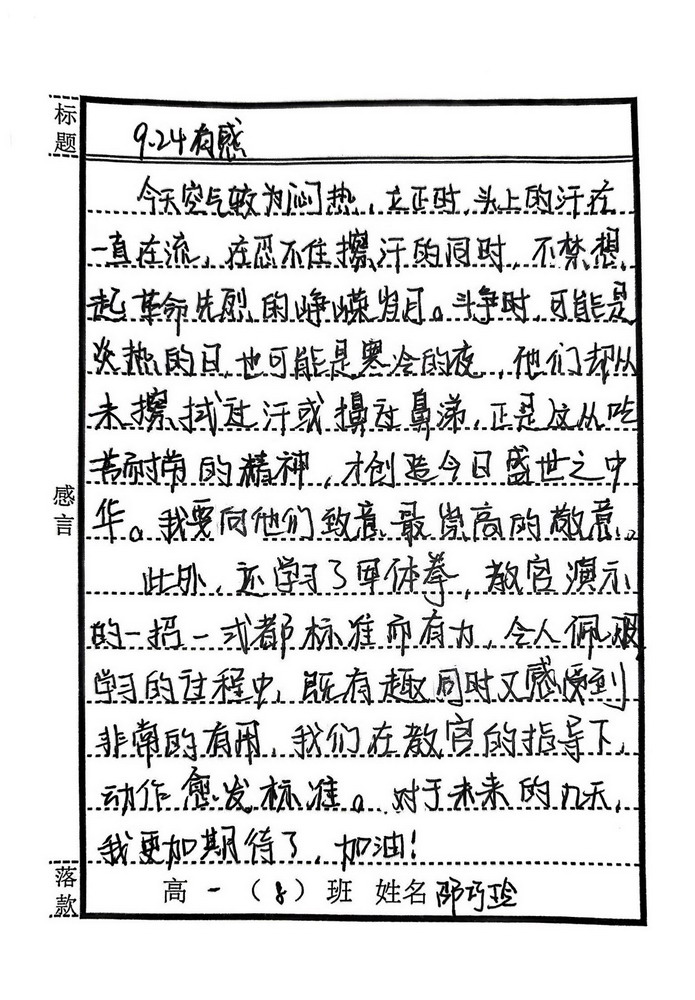 标题
9.24有感
今天空气较为闷热，立正时，头上的汗在
一直在流，在忍不住擦汗的同时，不禁想
起革命先烈的峥嵘岁月。斗争时，可能是
炎热的日，也可能是寒冷的夜，他们却从
未擦拭过汗或擤过鼻涕，正是这从吃
苦耐劳的精神，才创造今日盛世之中
华。我要向他们致意最崇高的敬意。
感言
此外，还学习了军体拳，教官演示
的一招一式都标准而有力，令人佩服
学习的过程中，既有趣同时又感受到
非常的有用，我们在教官的指导下，
动作愈发标准。对于未来的几天，
我更加期待了，加油！
落款
高一（8）班 姓名 邵巧玲